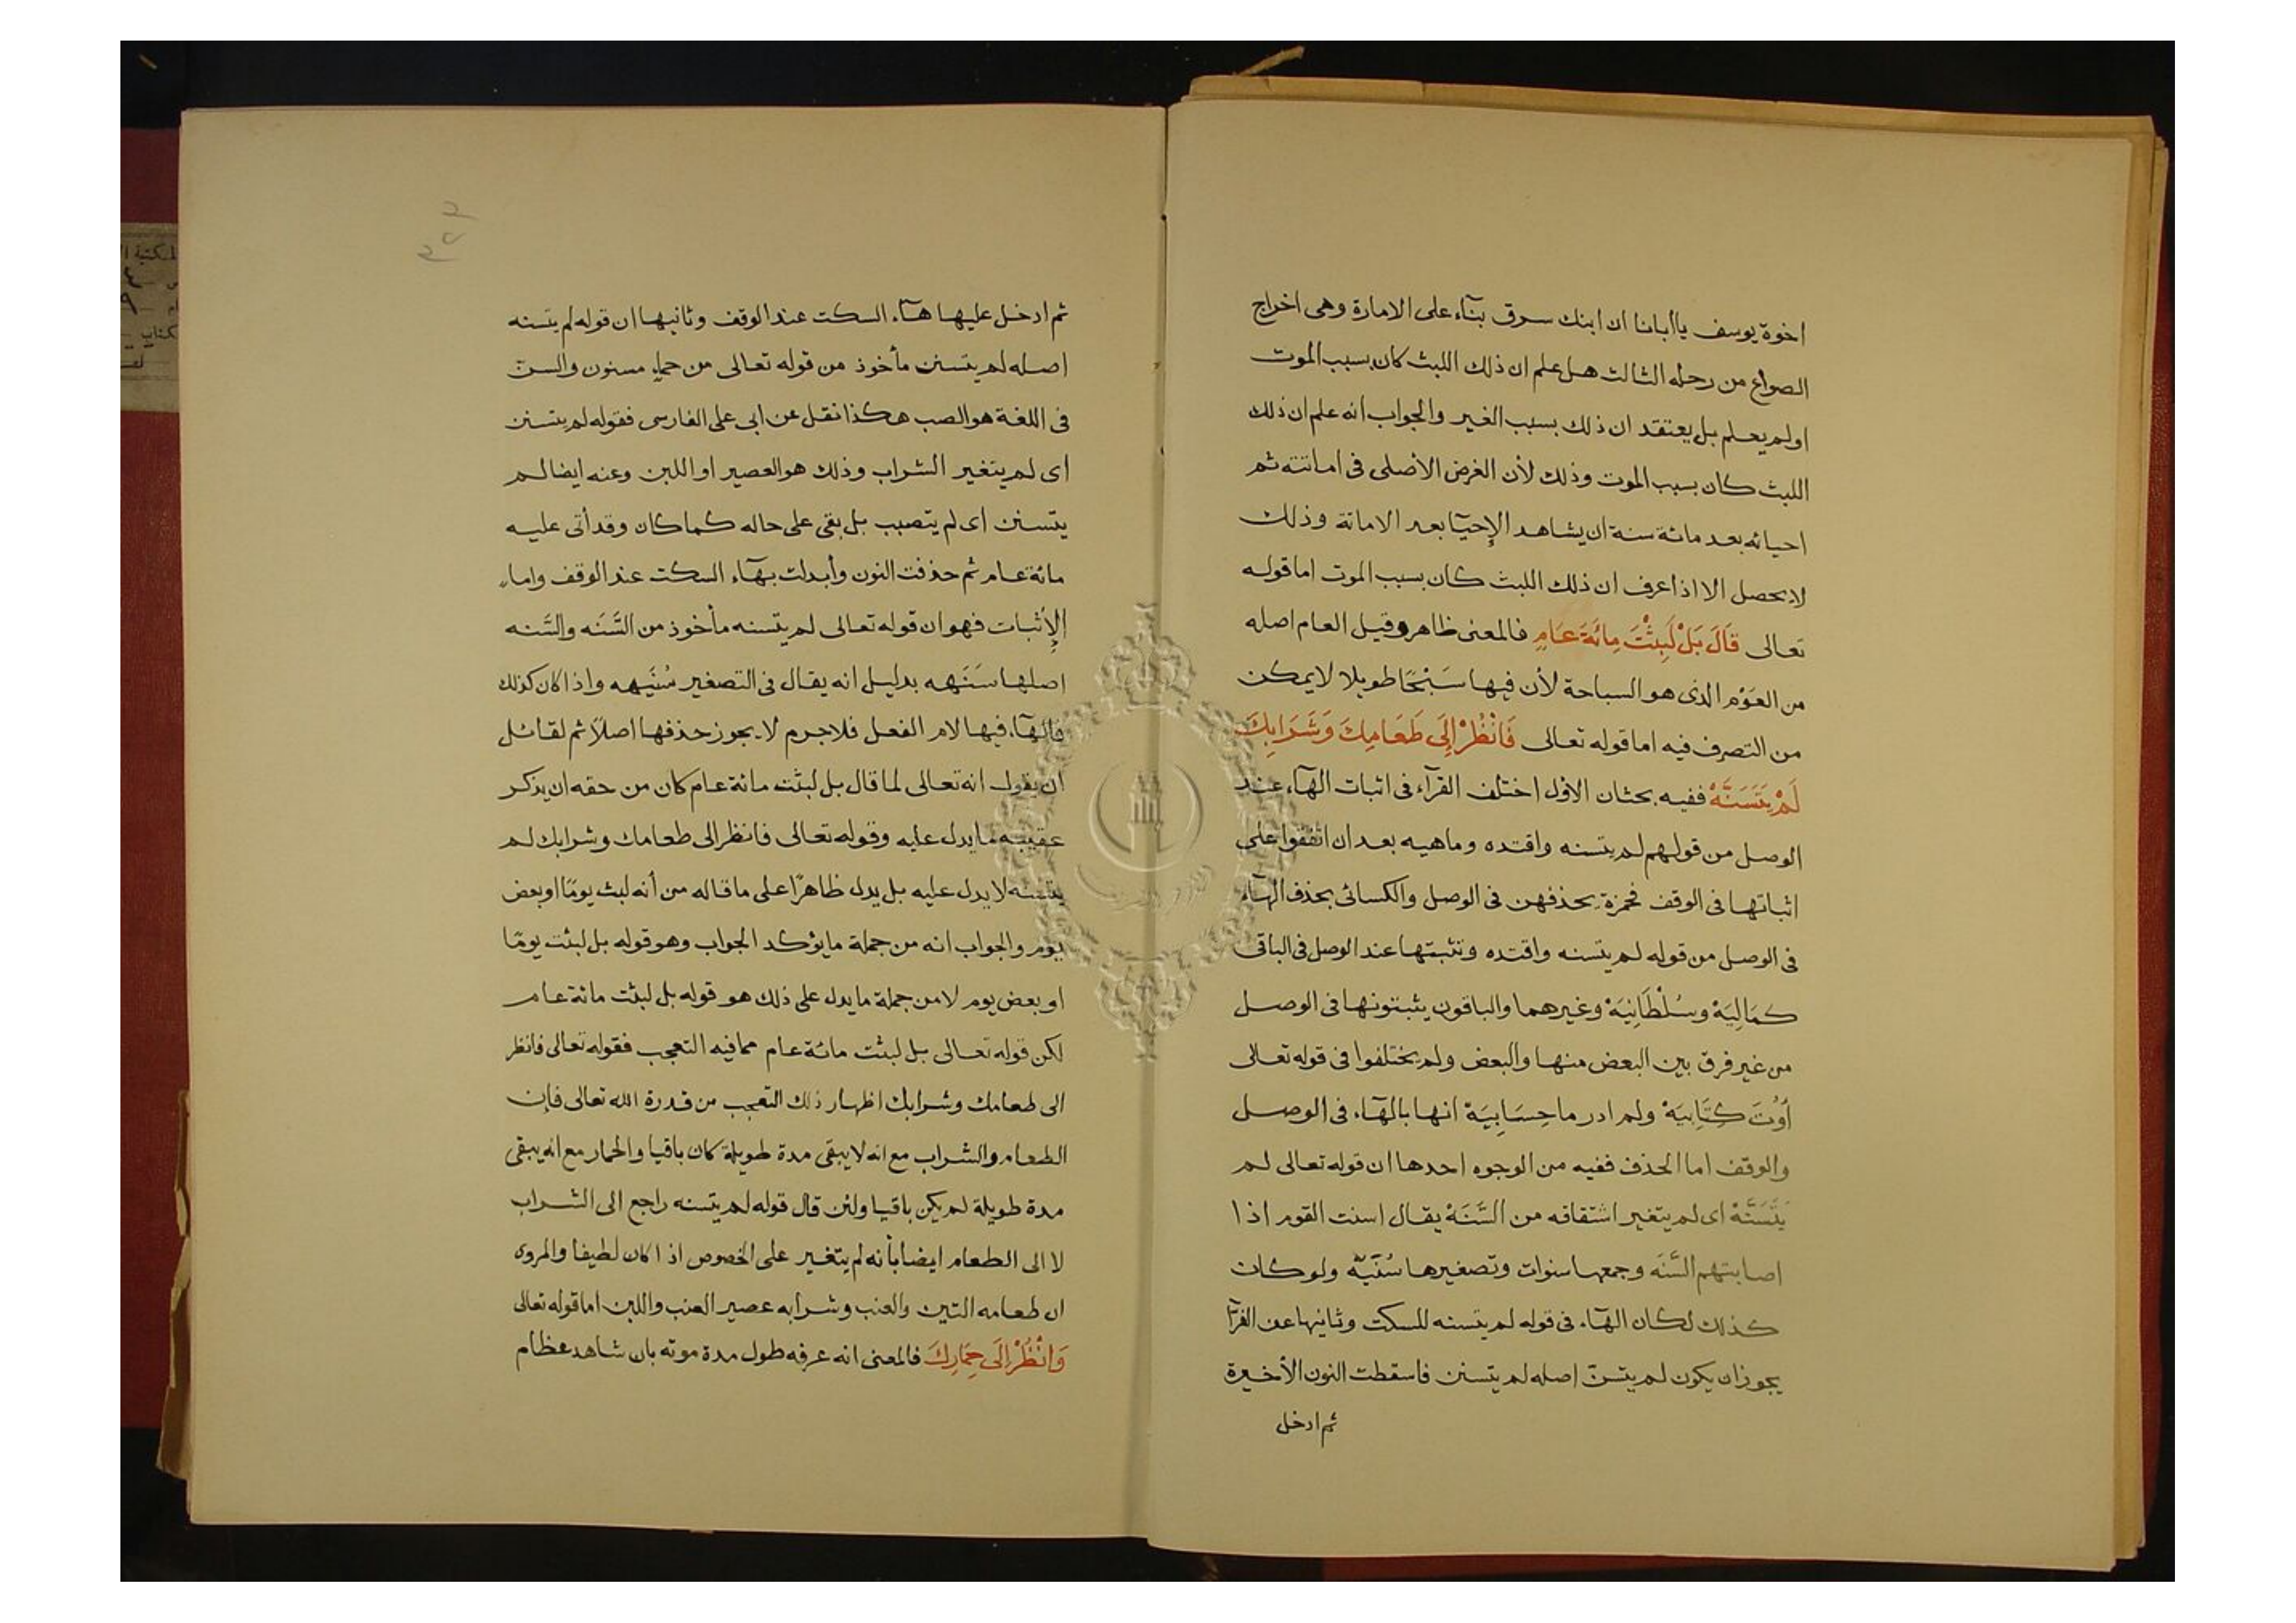 اخوة يوسف ياأبانا ان ابنك سرق بنآء على الامارة وهى اخراج
الصواع من رحله الثالث هل علم ان ذلك اللبث كان بسبب الموت
اولم يعلم بل يعتقد ان ذلك بسبب الغير والجواب انه علم ان ذلك
اللبث كان بسبب الموت وذلك لأن الغرض الأصلى فى اماتته ثم
احيائه بعد مائة سنة ان يشاهد الإحيآ بعد الاماتة وذلك
لا يحصل الا اذا عرف ان ذلك اللبث كان بسبب الموت اما قوله
تعالى قَالَ بَلْ لَبِثْتَ مِائَةَ عَامٍ فالمعنى ظاهر وقيل العام اصله
من العَوْم الذى هو السباحة لأن فيها سَبْحًا طويلا لا يمكن
من التصرف فيه اما قوله تعالى فَانْظُرْ إِلَى طَعَامِكَ وَشَرَابِكَ
لَمْ يَتَسَنَّهْ ففيه بحثان الأول اختلف القرآء فى اثبات الهآء عند
الوصل من قولهم لم يتسنه واقتده وماهيه بعد ان اتفقوا على
اثباتها فى الوقف فحمزة يحذفهن فى الوصل والكسائى يحذف الهآء
فى الوصل من قوله لم يتسنه واقتده وتثبتها عند الوصل فى الباقى
كمَالِيَهْ وسُلْطَانِيَهْ وغيرهما والباقون يثبتونها فى الوصل
من غير فرق بين البعض منها والبعض ولم يختلفوا فى قوله تعالى
أُوْتَ كِتَابِيَهْ ولم ادر ما حِسَابِيَهْ انها بالهآء فى الوصل
والوقف اما الحذف ففيه من الوجوه احدها ان قوله تعالى لم
يَتَسَنَّهْ اى لم يتغير اشتقاقه من السَّنَهْ يقال اسنت القوم اذا
اصابتهم السَّنَه وجمعها سنوات وتصغيرها سُنَيَّه ولو كان
كذلك لكان الهآء فى قوله لم يتسنه للسكت وثانيها عن الفرآ
يجوز ان يكون لم يتسنّ اصله لم يتسنن فاسقطت النون الأخيرة
ثم ادخل
ثم ادخل عليها هآء السكت عند الوقف وثانيها ان قوله لم يتسنه
اصله لم يتسنن مأخوذ من قوله تعالى من حماء مسنون والسن
فى اللغة هو الصب هكذا نقل عن ابى على الفارسى فقوله لم يتسنن
اى لم يتغير الشراب وذلك هو العصير او اللبن وعنه ايضا لم
يتسنن اى لم يتصبب بل بقى على حاله كما كان وقد أتى عليه
مائة عام ثم حذفت النون وأبدلت بهآء السكت عند الوقف واما
الإثبات فهو ان قوله تعالى لم يتسنه مأخوذ من السَّنَه والسَّنه
اصلها سَنَهه بدليل انه يقال فى التصغير سُنَيهه واذا كان كذلك
فالهآء فيها لام الفعل فلا جرم لا يجوز حذفها اصلاً ثم لقائل
ان يقول انه تعالى لما قال بل لبثت مائة عام كان من حقه ان يذكر
عقيبه ما يدل عليه وقوله تعالى فانظر الى طعامك وشرابك لم
يتسنه لا يدل عليه بل يدل ظاهرًا على ما قاله من أنه لبث يومًا او بعض
يوم والجواب انه من جملة ما يؤكد الجواب وهو قوله بل لبثت يومًا
او بعض يوم لا من جملة ما يدل على ذلك هو قوله بل لبثت مائة عام
لكن قوله تعالى بل لبثت مائة عام مما فيه التعجب فقوله تعالى فانظر
الى طعامك وشرابك اظهار ذلك التعجب من قدرة الله تعالى فإن
الطعام والشراب مع انه لا يبقى مدة طويلة كان باقيا والحمار مع انه يبقى
مدة طويلة لم يكن باقيا ولئن قال قوله لم يتسنه راجع الى الشراب
لا الى الطعام ايضا بأنه لم يتغير على الخصوص اذا كان لطيفا والمروى
ان طعامه التين والعنب وشرابه عصير العنب واللبن اما قوله تعالى
وَانْظُرْ إِلَى حِمَارِكَ فالمعنى انه عرفه طول مدة موته بان شاهد عظام